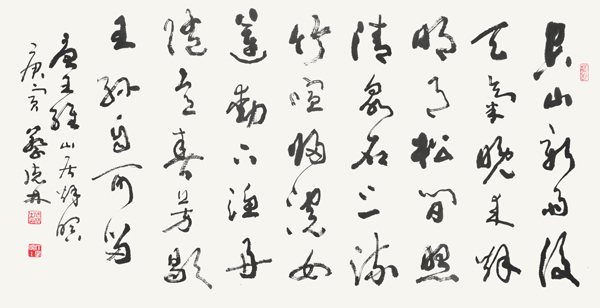 空山新雨後
天氣晚來秋
明月松間照
清泉石上流
竹喧歸浣女
蓮動下漁舟
隨意春芳歇
王孫自可留
唐王維山居秋暝
庚寅